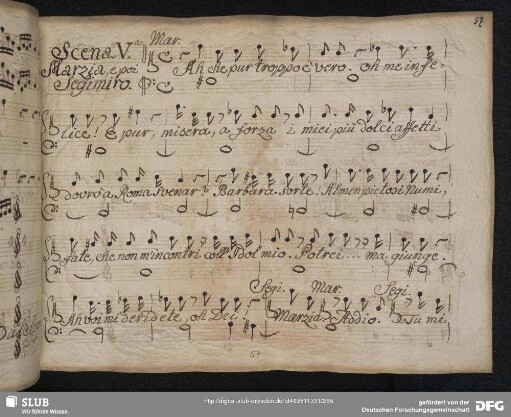 57
Scena V.ª Mar.
Marzia, e poi Ah che pur troppo è vero. oh me infe=
Segimiro.
lice! E pur, misera, a forza i miei più dolci affetti
dovrò a Roma svenar? Barbara sorte! Almen, pietosi Numi,
fate, che non m'incontri coll'Idol mio. Potrei.... ma giunge.
Segi. Mar. Segi.
Ah voi mi deridete, oh Dei! Marzia. Addio. E tu mi
57
SLUB
Wir führen Wissen.
gefördert von der
Deutschen Forschungsgemeinschaft
DFG